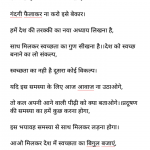 गंदगी फैलाकर ना करो इसे बेकार।
हमें देश की तरक्की का नया अध्याय लिखना है,
साथ मिलकर स्वच्छता का गुण सीखना है।।देश को स्वच्छ
बनाने का लो संकल्प,
स्वच्छता का नही है दूसरा कोई विकल्प।
यदि इस समस्या के लिए आज आवाज ना उठाओगे,
तो कल अपनी आने वाली पीढ़ी को क्या बताओगे।।प्रदूषण
की समस्या का हमें कुछ करना होगा,
इस भयावह समस्या से साथ मिलकर लड़ना होगा।
आओ मिलकर देश में स्वच्छता का बिगुल बजाएं,